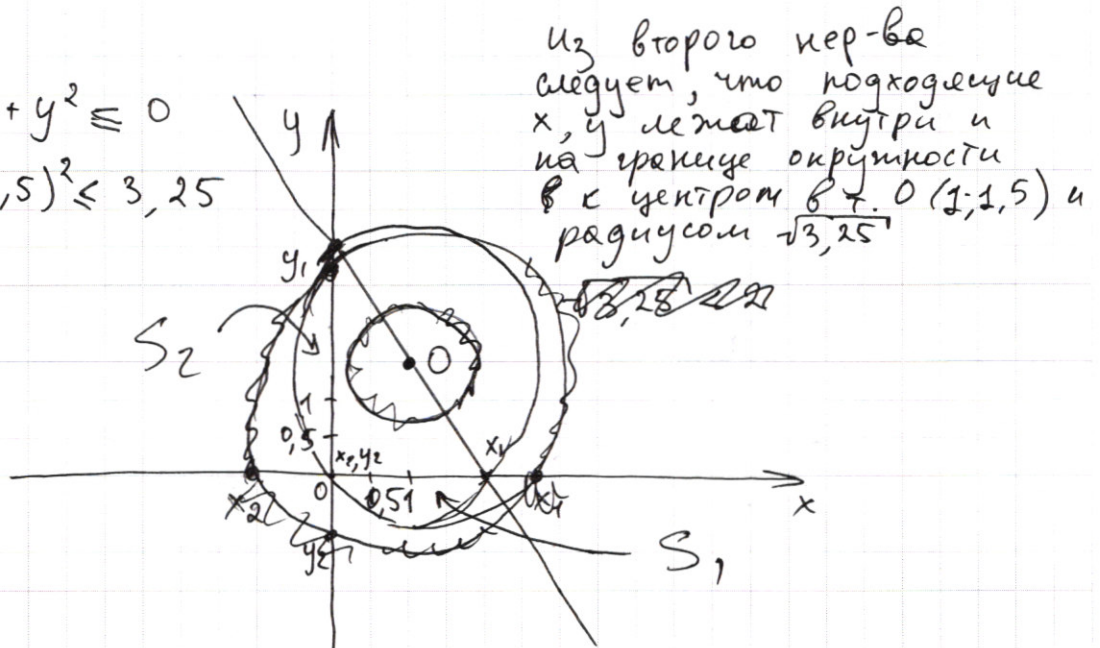 Из второго нер-ва
следует, что подходящие
+ y² ≤ 0
x, y лежат внутри и
на границе окружности
,5)² ≤ 3,25
в к центром в т. O (1;1,5) и
радиусом √3,25
y
y₁
S₂
O
1
0,5
x₂,y₂
x₁
0
0,5
1
x₂
x₁
x
y₂
S₁